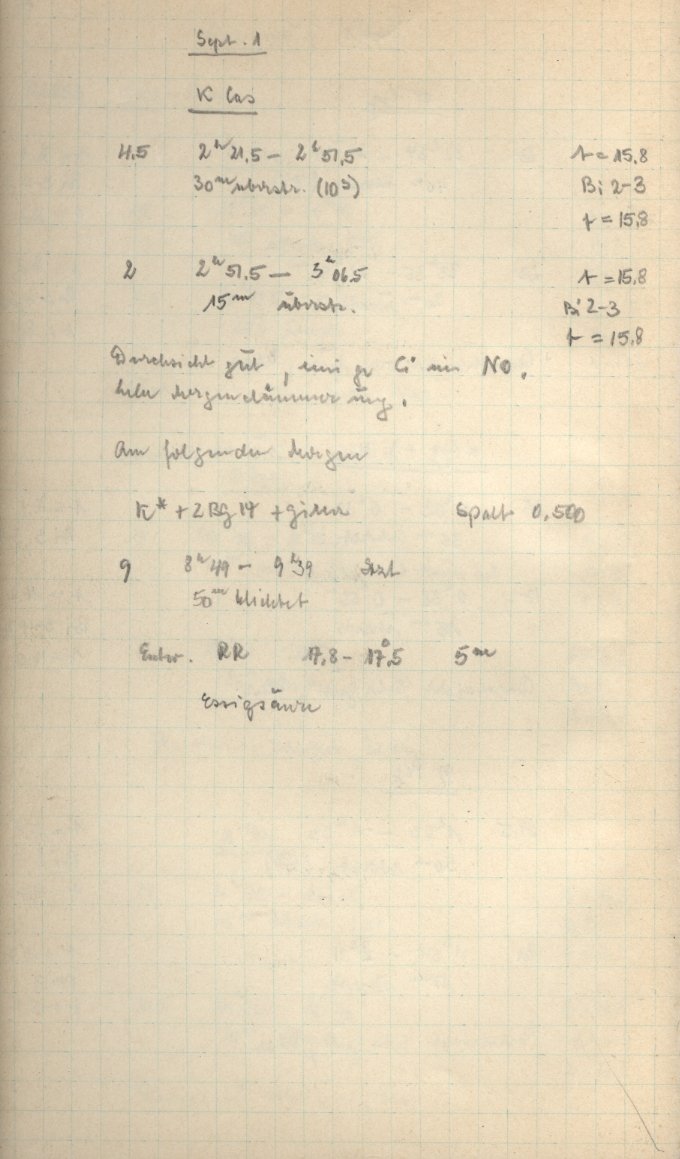 Sept. 1
K Cas
4.5 2h 21,5 – 2h 51,5 t = 15,8
30m überstr. (10s) Bi 2-3
t = 15,8
2 2h 51,5 – 3h 06,5 t = 15,8
15m überstr. Bi 2-3
t = 15,8
Durchsicht gut, einige Ci im NO.
helle Morgendämmerung.
Am folgenden Morgen
K* + 2 BG 17 + Spalt 0,500
9 8h 49 – 9h 39
50m belichtet
Entw. RR 17,8 – 17°,5 5m
Essigsäure